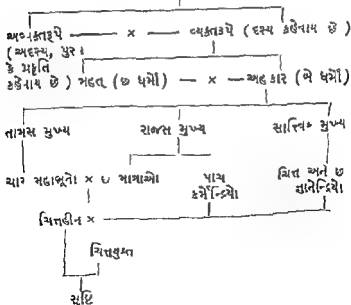 અવ્યક્તરૂપે × વ્યક્તરૂપે (દસ્ય કહેવાય છે)
(અદસ્ય, પુરા
કે પ્રકૃતિ
કહેવાય છે) મહત્ (૭ ધર્મો) — × — અહંકાર (બે ધર્મો)
તામસ મુખ્ય રાજસ મુખ્ય સાત્ત્વિક મુખ્ય
ચાર મહાભૂતો × ૬ માત્રાઓ પાંચ ચિત્ત અને ૭
કર્મેન્દ્રિયો જ્ઞાનેન્દ્રિયો
ચિત્તહીન ×
ચિત્તયુક્ત
સૃષ્ટિ